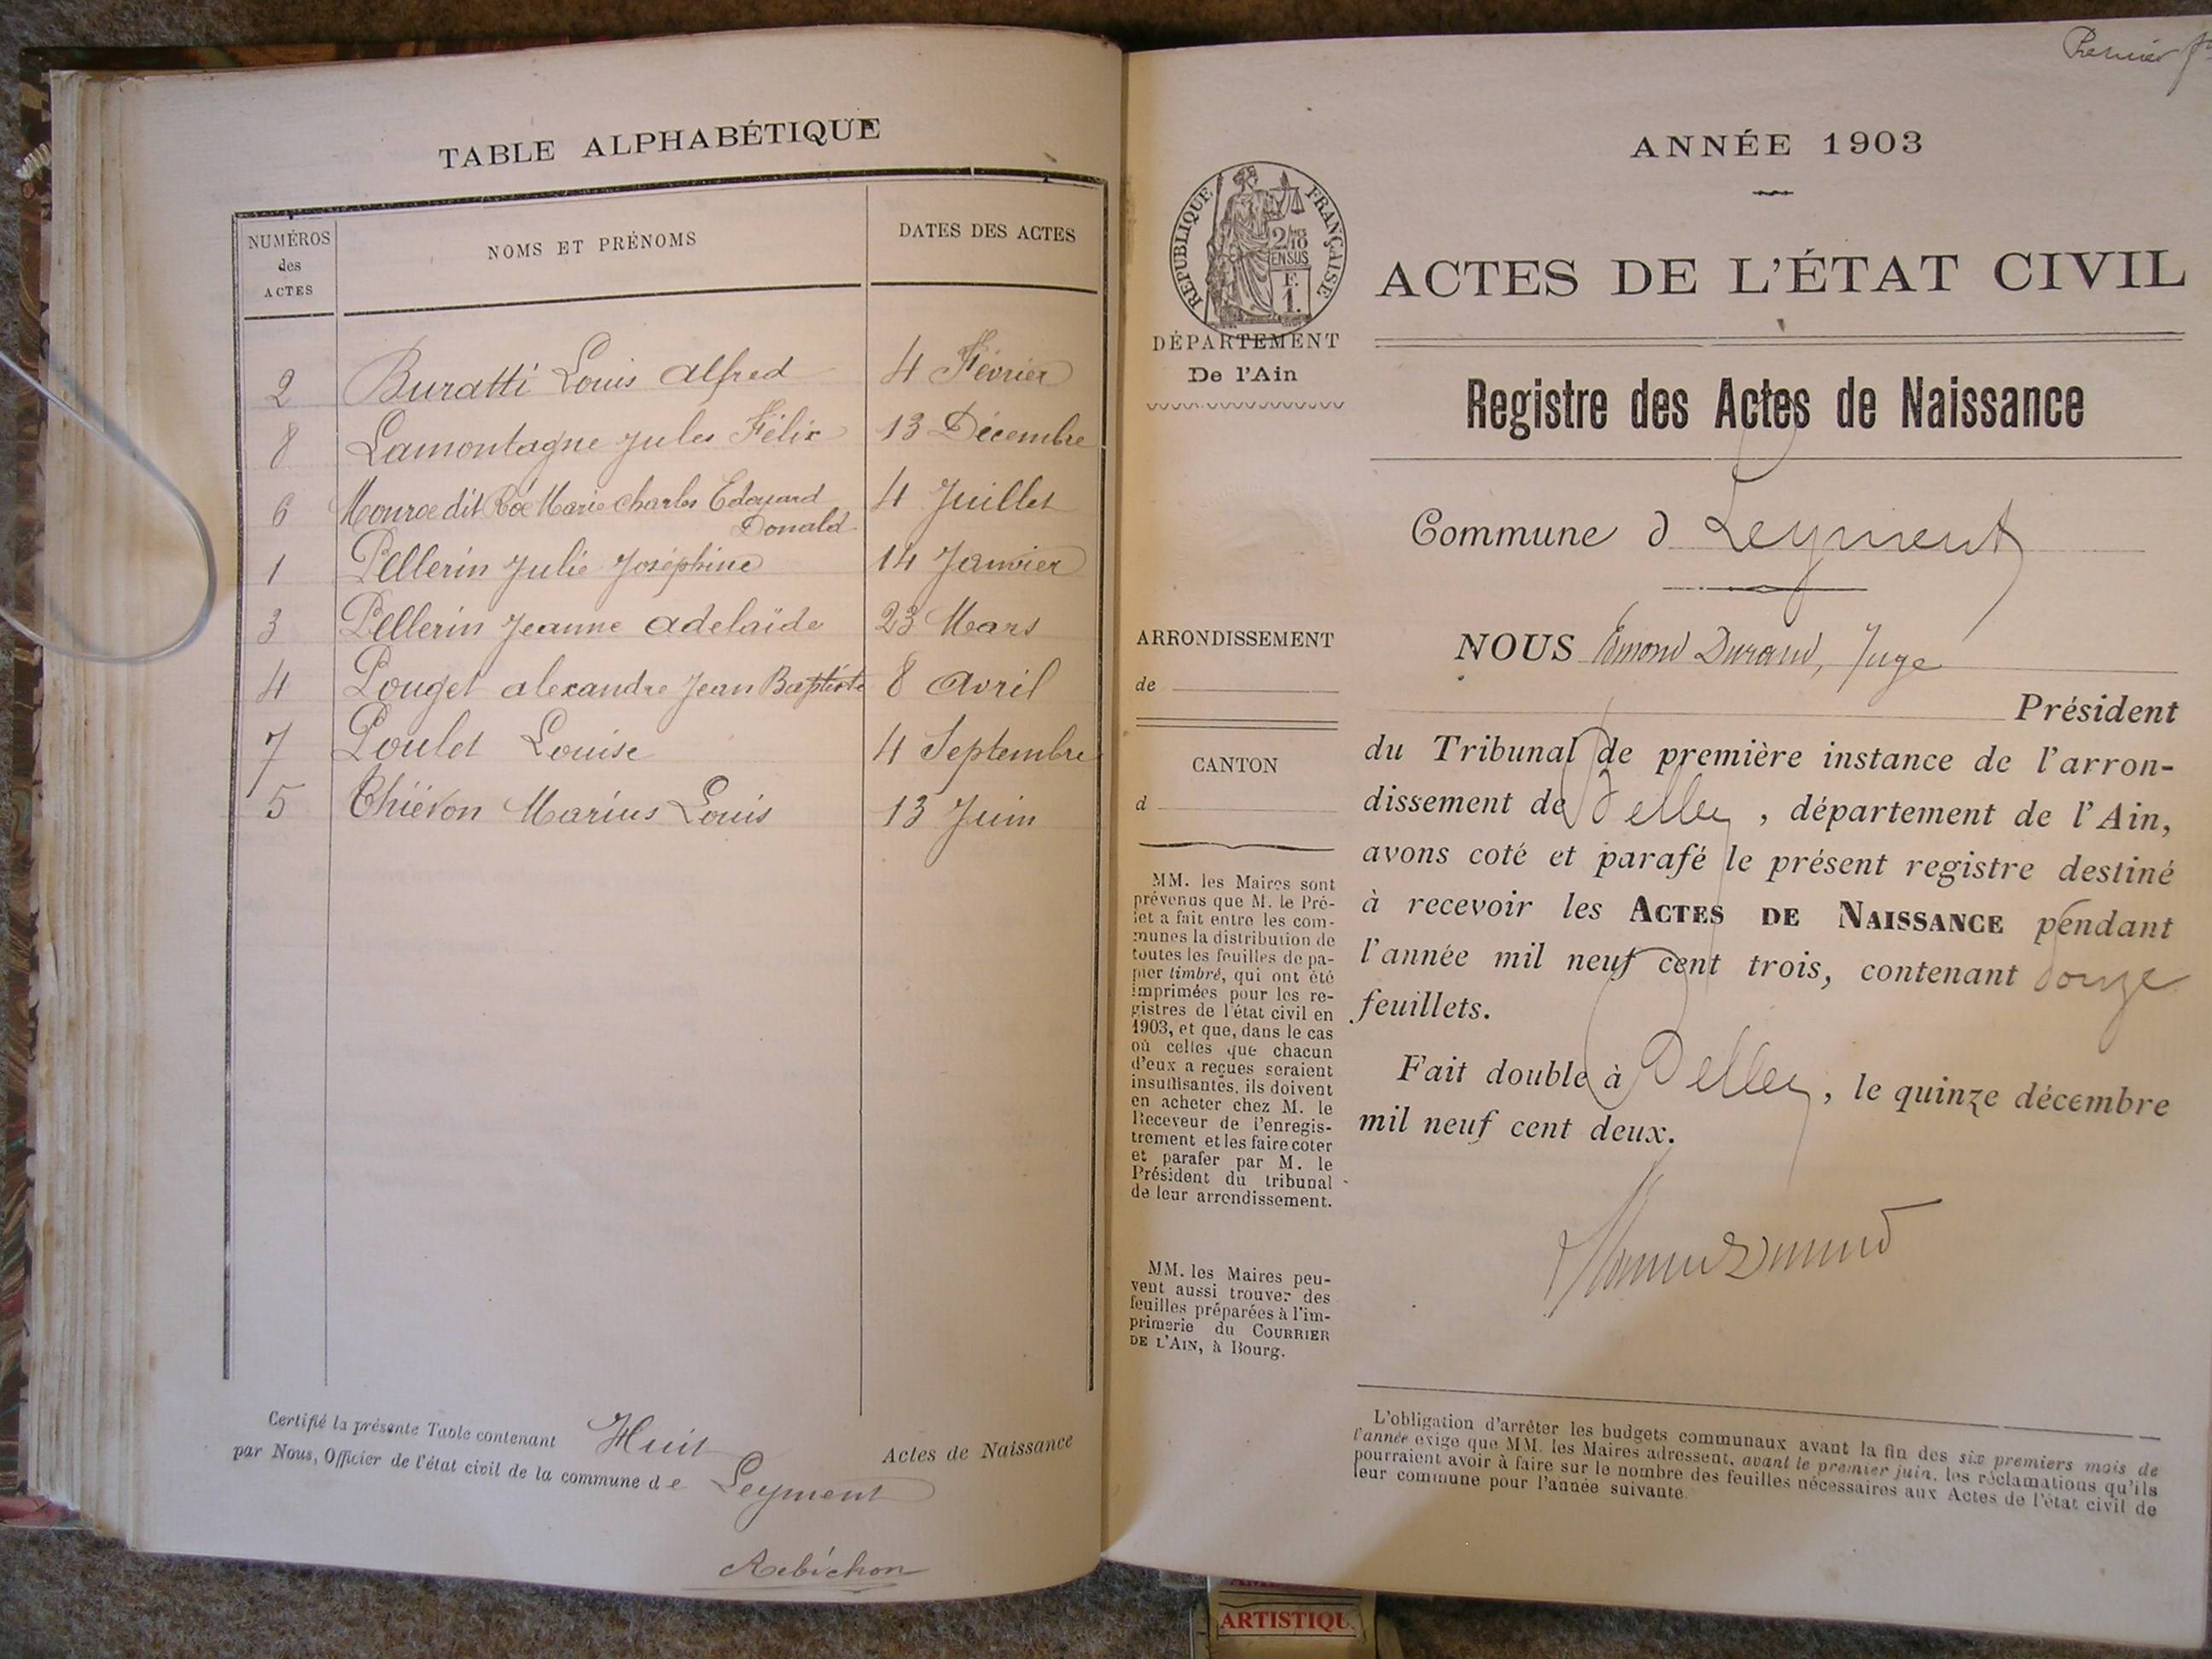 TABLE ALPHABÉTIQUE
NUMÉROS des ACTES NOMS ET PRÉNOMS DATES DES ACTES
2 Buratti Louis Alfred 4 Février
8 Lamontagne Jules Félix 13 Décembre
6 Monroe dit Roé Marie Charles Edouard 4 Juillet
Donald
1 Pellerin Julie Joséphine 14 Janvier
3 Pellerin Jeanne Adelaïde 23 Mars
4 Pouget Alexandre Jean Baptiste 8 Avril
7 Poulet Louise 4 Septembre
5 Thiévon Marius Louis 13 Juin
Certifié la présente Table contenant Huit Actes de Naissance
par Nous, Officier de l'état civil de la commune de Leyment
Rebichon
Premier
ANNÉE 1903
RÉPUBLIQUE FRANÇAISE
2/10 EN SUS
F. 1.
ACTES DE L'ÉTAT CIVIL
DÉPARTEMENT
De l'Ain
Registre des Actes de Naissance
Commune d Leyment
ARRONDISSEMENT
de
CANTON
d
MM. les Maires sont
prévenus que M. le Pré-
fet a fait entre les com-
munes la distribution de
toutes les feuilles de pa-
pier timbré, qui ont été
imprimées pour les re-
gistres de l'état civil en
1903, et que, dans le cas
où celles que chacun
d'eux a reçues seraient
insuffisantes, ils doivent
en acheter chez M. le
Receveur de l'enregis-
trement et les faire coter
et parafer par M. le
Président du tribunal
de leur arrondissement.
MM. les Maires peu-
vent aussi trouver des
feuilles préparées à l'im-
primerie du COURRIER
DE L'AIN, à Bourg.
NOUS Edmond Durand, Juge
Président
du Tribunal de première instance de l'arron-
dissement de Belley, département de l'Ain,
avons coté et parafé le présent registre destiné
à recevoir les ACTES DE NAISSANCE pendant
l'année mil neuf cent trois, contenant douze
feuillets.
Fait double à Belley, le quinze décembre
mil neuf cent deux.
L'obligation d'arrêter les budgets communaux avant la fin des six premiers mois de
l'année exige que MM. les Maires adressent, avant le premier juin, les réclamations qu'ils
pourraient avoir à faire sur le nombre des feuilles nécessaires aux Actes de l'état civil de
leur commune pour l'année suivante.
ARTISTIQU